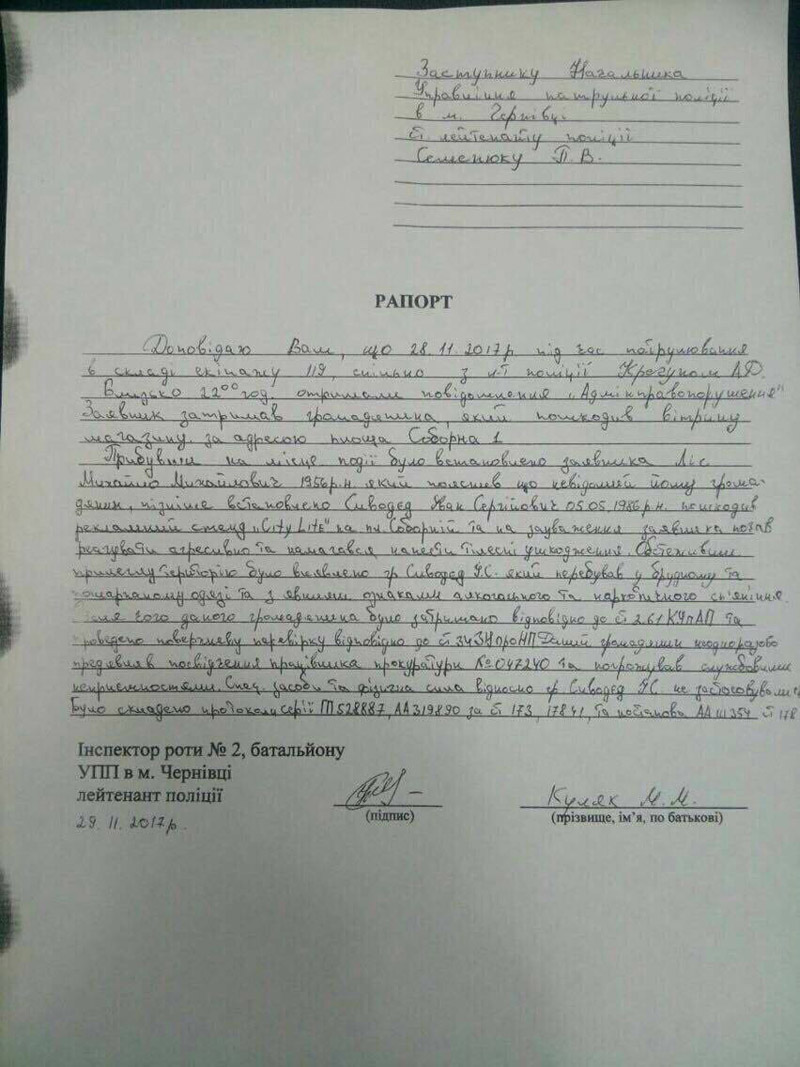 Заступнику Начальника
Управління патрульної поліції
в м. Чернівці
ст. лейтенанту поліції
Семенюку П. В.
РАПОРТ
Доповідаю Вам, що 28.11.2017р під час патрулювання
в складі екіпажу 119, спільно з л-т поліції А.Р.
Близько 22⁰⁰ год. отримали повідомлення "Адмінправопорушення"
Заявник затримав громадянина, який пошкодив вітрину
магазину за адресою площа Соборна 1
Прибувши на місце події було встановлено заявника Ліс
Михайло Михайлович 1956р.н. який пояснив що невідомий йому грома-
дянин, пізніше встановлено Сиводєд Іван Сергійович 05.05.1986р.н. пошкодив
рекламний стенд "City Life" на пл. Соборній та на зауваження заявника почав
реагувати агресивно та намагався нанести тілесні ушкодження. Обстеживши
прилеглу територію було виявлено гр Сиводєд І.С. який перебував у брудному та
пошарпаному одязі та з явними ознаками алкогольного та наркотичного сп'яніння.
ісля чого даного громадянина було затримано відповідно до ст 261 КУпАП та
роведено поверхневу перевірку відповідно до ст 34 ЗУ про НП Даний громадянин неодноразово
предявляв посвідчення працівника прокуратури №047240 та погрожував службовими
неприємностями. Спец. засоби та фізична сила відносно гр Сиводєд І.С. не застосовувались
Було складено протокол серії 528887, АА319890 за ст 173, 178 ч1, та постанова АА 111354 ст 178
Інспектор роти № 2, батальйону
УПП в м. Чернівці
лейтенант поліції
(підпис)
Куляк М. М.
(прізвище, ім'я, по батькові)
29. 11. 2017р.